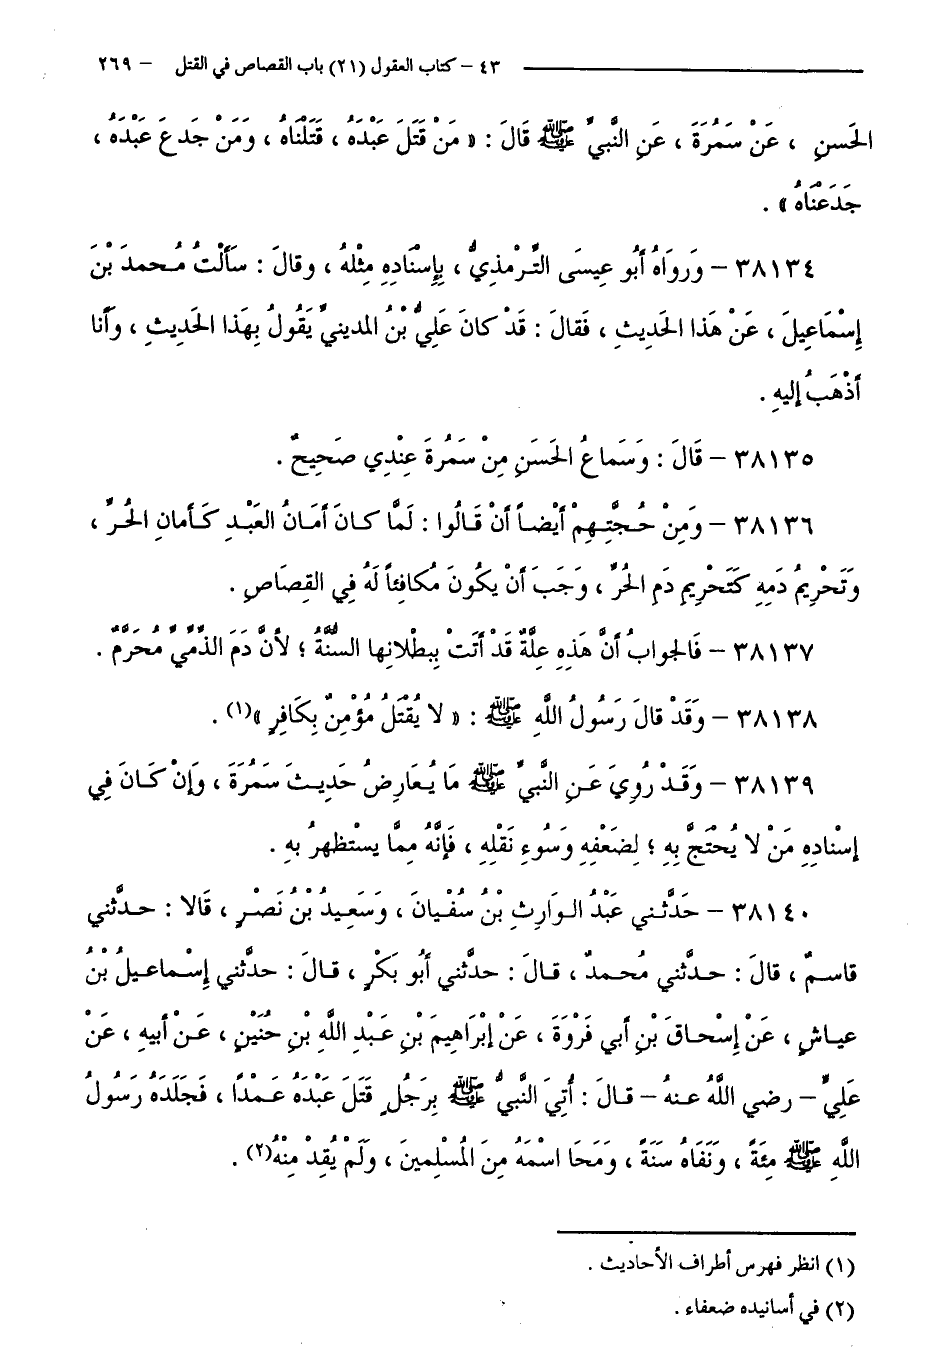 ٤٣ – كتاب العقول (٢١) باب القصاص في القتل – ٢٦٩
الحَسنِ ، عَنْ سَمُرَةَ ، عَنِ النَّبيِّ ﷺ قَالَ : « مَنْ قَتَلَ عَبْدَهُ ، قَتَلْنَاهُ ، وَمَنْ جَدعَ عَبْدَهُ ،
جَدَعْنَاهُ » .
٣٨١٣٤ – وَرَوَاهُ أَبُو عِيسَى التِّرْمذِيُّ ، بِإِسْنَادِهِ مِثْلهُ ، وقالَ : سَأَلْتُ مُحمدَ بْنَ
إِسْمَاعِيلَ ، عَنْ هَذا الحَدِيثِ ، فَقالَ : قَدْ كانَ عَلِيُّ بْنُ المدينيِّ يَقُولُ بِهَذا الحَديثِ ، وأَنا
أَذْهَبُ إليهِ .
٣٨١٣٥ – قَالَ : وَسَماعُ الحَسَنِ مِنْ سَمُرَةَ عِنْدِي صَحِيحٌ .
٣٨١٣٦ – وَمِنْ حُجَّتِهِمْ أَيْضاً أَنْ قَالُوا : لَمَّا كانَ أَمَانُ العَبْدِ كَأَمانِ الحُرِّ ،
وَتَحْرِيمُ دَمِهِ كَتَحْرِيمِ دَمِ الحُرِّ ، وَجَبَ أَنْ يَكُونَ مُكافِئاً لَهُ فِي القِصَاصِ .
٣٨١٣٧ – فَالجوابُ أَنَّ هَذِهِ عِلَّةٌ قَدْ أَتَتْ بِبطْلانِها السُّنَّةُ ؛ لأَنَّ دَمَ الذِّمِّيِّ مُحَرَّمٌ .
٣٨١٣٨ – وَقَدْ قالَ رَسُولُ اللَّهِ ﷺ : « لا يُقْتَلُ مُؤْمِنٌ بِكَافِرٍ »(١) .
٣٨١٣٩ – وَقَدْ رُوِيَ عَنِ النَّبيِّ ﷺ مَا يُعَارِضُ حَديثَ سَمُرَةَ ، وَإِنْ كَانَ فِي
إِسْنادِهِ مَنْ لا يُحْتَجُّ بِهِ ؛ لِضَعْفِهِ وَسُوءِ نَقْلِهِ ، فَإِنَّهُ مِمَّا يسْتَظهرُ بهِ .
٣٨١٤٠ – حَدَّثني عَبْدُ الوَارِثِ بْنُ سُفْيانَ ، وَسَعِيدُ بْنُ نَصْرٍ ، قَالا : حدَّثني
قاسمٌ ، قالَ : حدَّثني مُحمدٌ ، قالَ : حدَّثني أَبُو بَكْرٍ ، قالَ : حدَّثني إِسْماعيلُ بْنُ
عياشٍ ، عَنْ إِسْحاقَ بْنِ أَبي فَرْوَةَ ، عَنْ إِبْرَاهِيمَ بْنِ عَبْدِ اللَّهِ بْنِ حُنَيْنٍ ، عَنْ أَبيهِ ، عَنْ
عَلِيٍّ – رضي اللَّهُ عنهُ – قالَ : أُتِيَ النَّبيُّ ﷺ بِرَجُلٍ قَتَلَ عَبْدَهُ عَمْدًا ، فَجَلَدَهُ رَسُولُ
اللَّهِ ﷺ مِئَةً ، وَنَفَاهُ سَنَةً ، وَمَحَا اسْمَهُ مِنَ المُسْلِمينَ ، وَلَمْ يُقِدْ مِنْهُ(٢) .
(١) انظر فهرس أطراف الأحاديث .
(٢) في أسانيده ضعفاء .